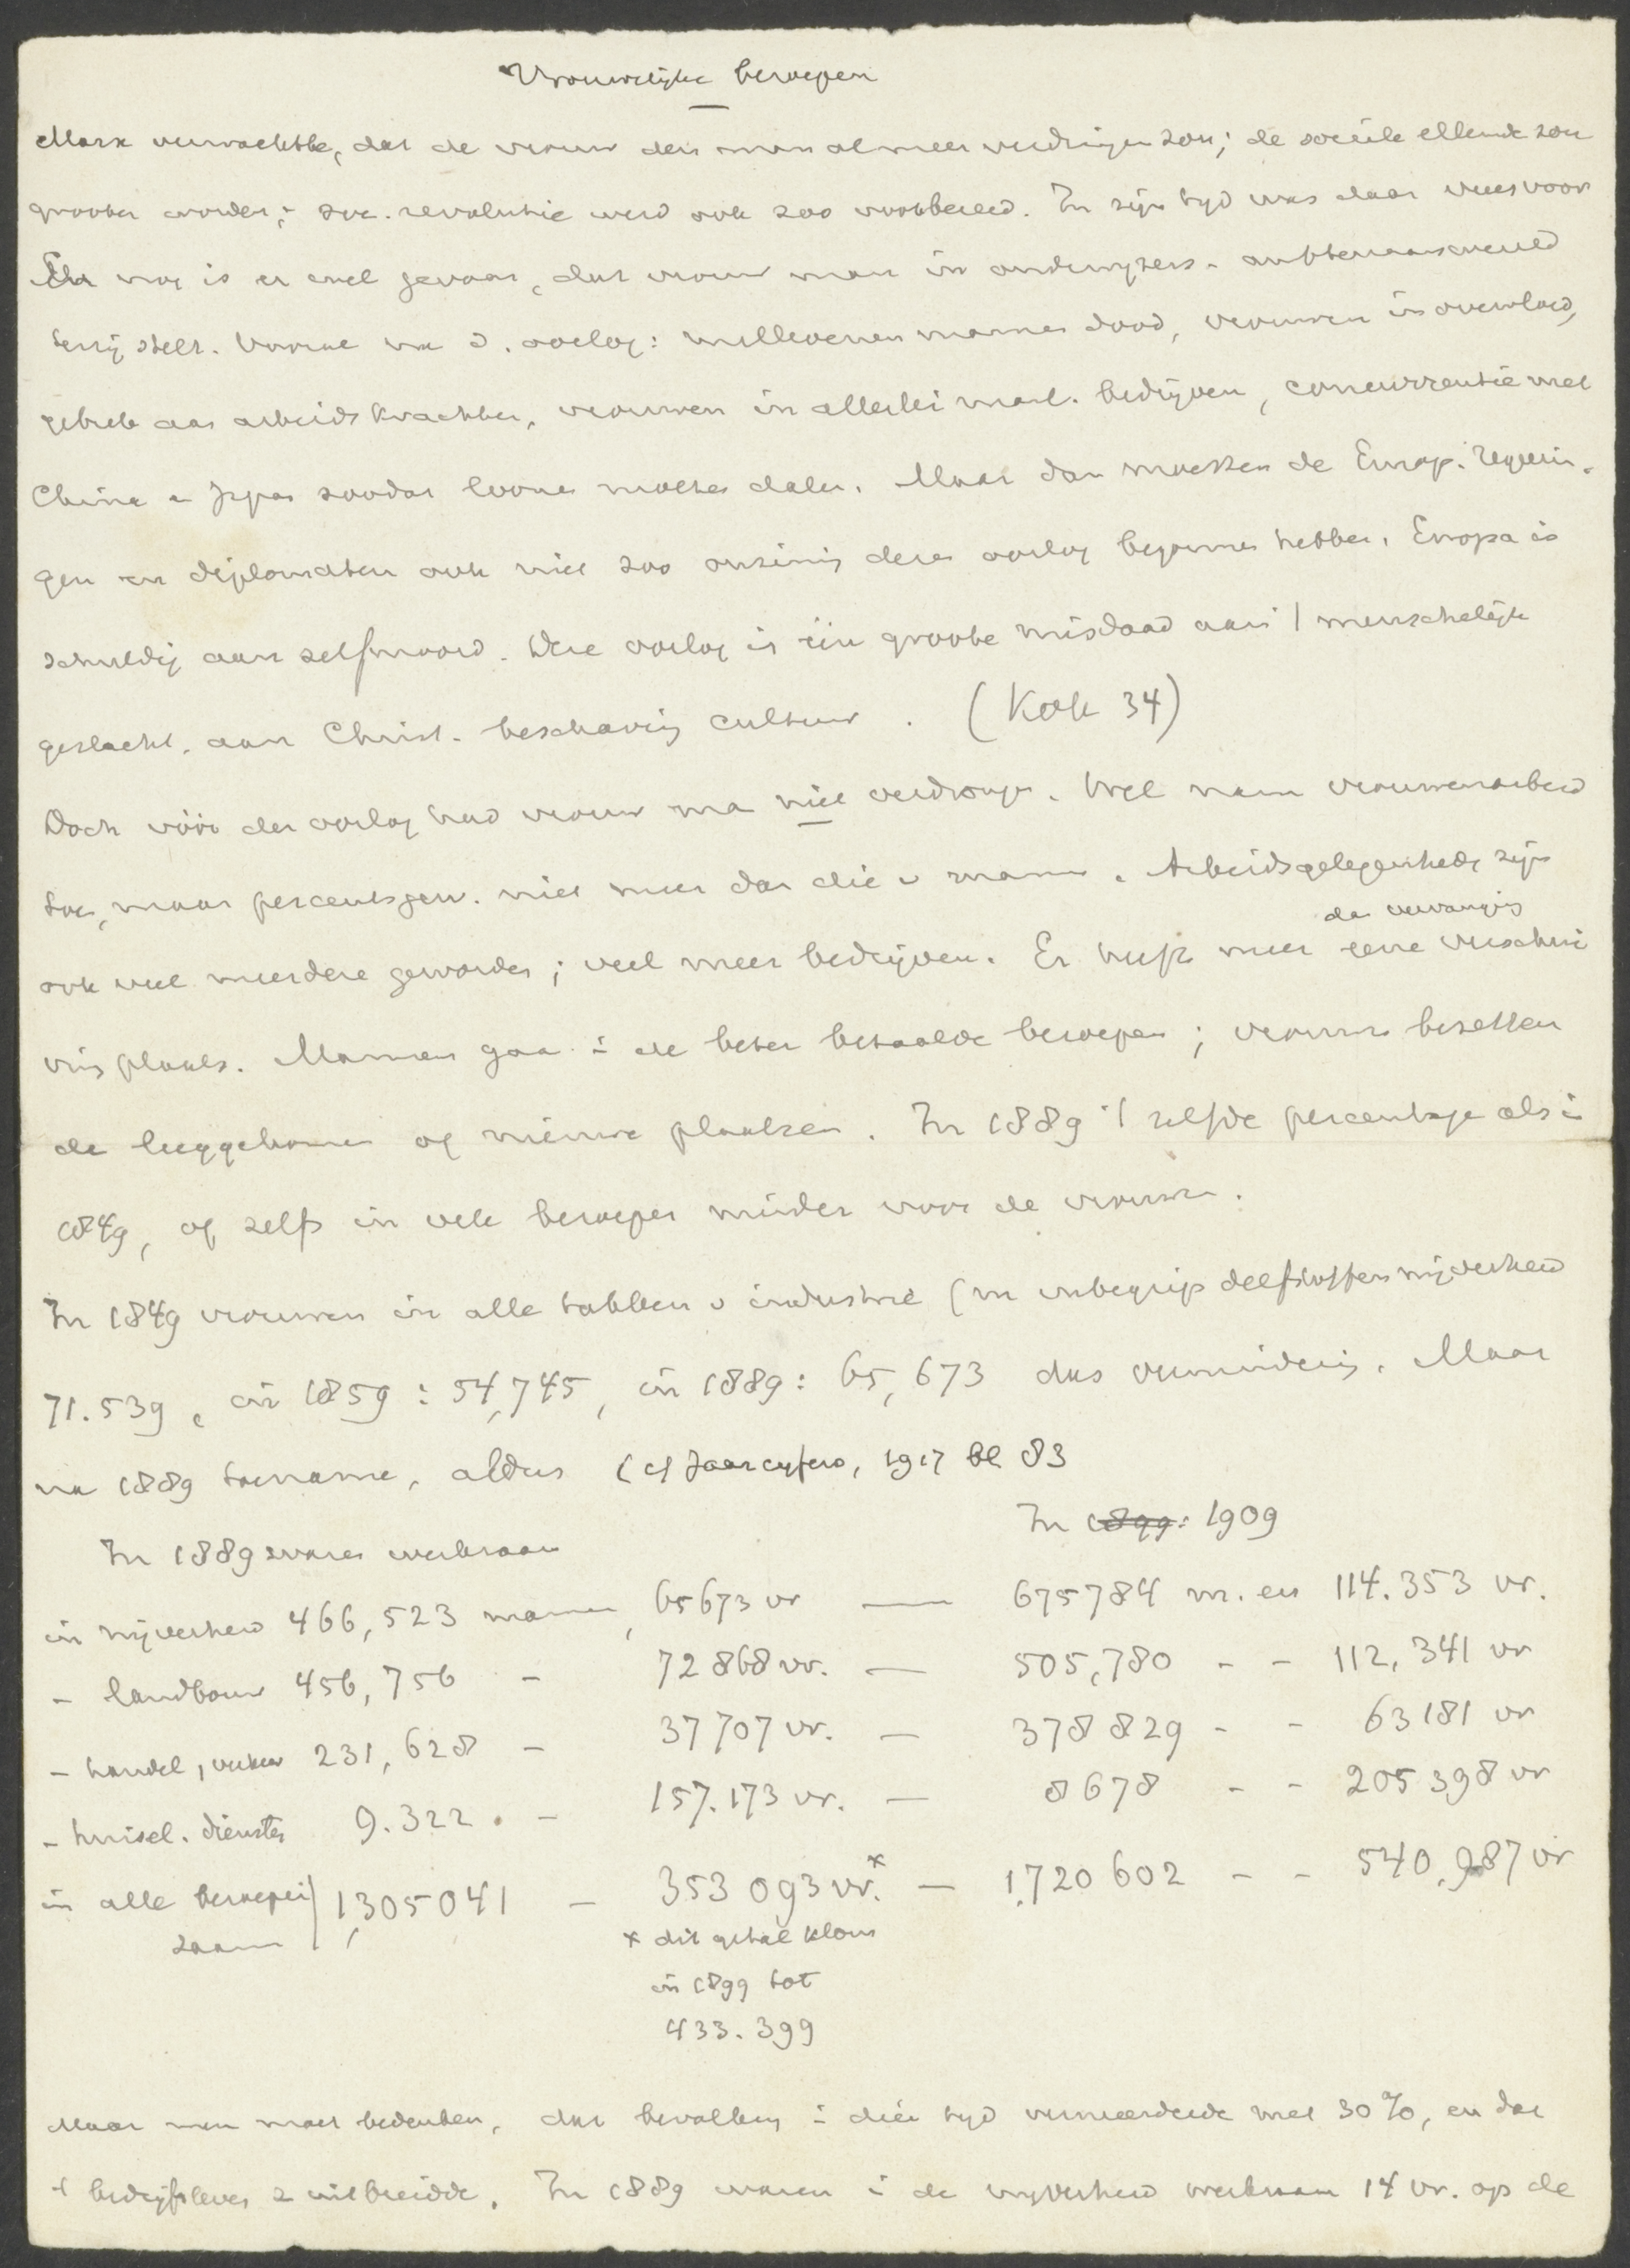 Vrouwelijke beroepen
Marx verwachtte, dat de vrouw den man al meer verdringen zou; de sociale ellende zou
grooter worden; soc. revolutie werd ook zoo voorbereid. In zijn tyd was daar vrees voor
En nog is er wel gevaar, dat vrouw man in onderwyzers- ambtenaarswereld
terzij stelt. Vooral na d. oorlog: millioenen mannen dood, vrouwen in overvloed,
gebrek aan arbeidskrachten, vrouwen in allerlei mnl. bedrijven, concurrentie met
China en Japan zoodat loonen moeten dalen. Maar dan moesten de Europ. regeerin-
gen en diplomaten ook niet zoo onzinnig dezen oorlog begonnen hebben. Europa is
schuldig aan zelfmoord. Deze oorlog is één groote misdaad aan 't menschelijk
geslacht, aan Christ. beschaving cultuur. (Kok 34)
Doch vóór den oorlog had vrouw man niet verdrongen. Wel nam vrouwenarbeid
toe, maar percentsgew. niet meer dan die v mannen. Arbeidsgelegenhedn zijn
ook veel meerdere geworden; veel meer bedrijven. Er heeft meer
dan vervanging
eene verschui
ving plaats. Mannen gaan in de beter betaalde beroepen; vrouwen bezetten
de leeggekomen of nieuwe plaatsen. In 1889 't zelfde percentage als in
1849, of zelfs in vele beroepen minder voor de vrouwen.
In 1849 vrouwen in alle takken v industrie (m inbegrip delfstoffennijverheid
71.539, in 1859: 54,745, in 1889: 65,673 dus vermindering. Maar
na 1889 toename, aldus (cf Jaarcyfers, 1917 bl 83
In 1889 waren werkzaam
In 1899: 1909
in nijverheid 466,523 mannen, 65673 vr — 675784 m. en 114.353 vr.
- landbouw 456,756 - 72868 vr. — 505,780 - - 112,341 vr
- handel, verkeer 231,628 - 37707 vr. — 378829 - - 63181 vr
- huisel. diensten 9.322 . - 157.173 vr. — 8678 - - 205398 vr
in alle beroepen 1,305041 - 353093 vr.* — 1,720602 - - 540,987 vr
zaam
* dit getal klom
in 1899 tot
433.399
Maar men moet bedenken, dat bevolking in dien tyd vermeerderde met 30%, en dat
't bedrijfsleven z uitbreidde. In 1889 waren in de nyverheid werkzaam 14 vr. op de